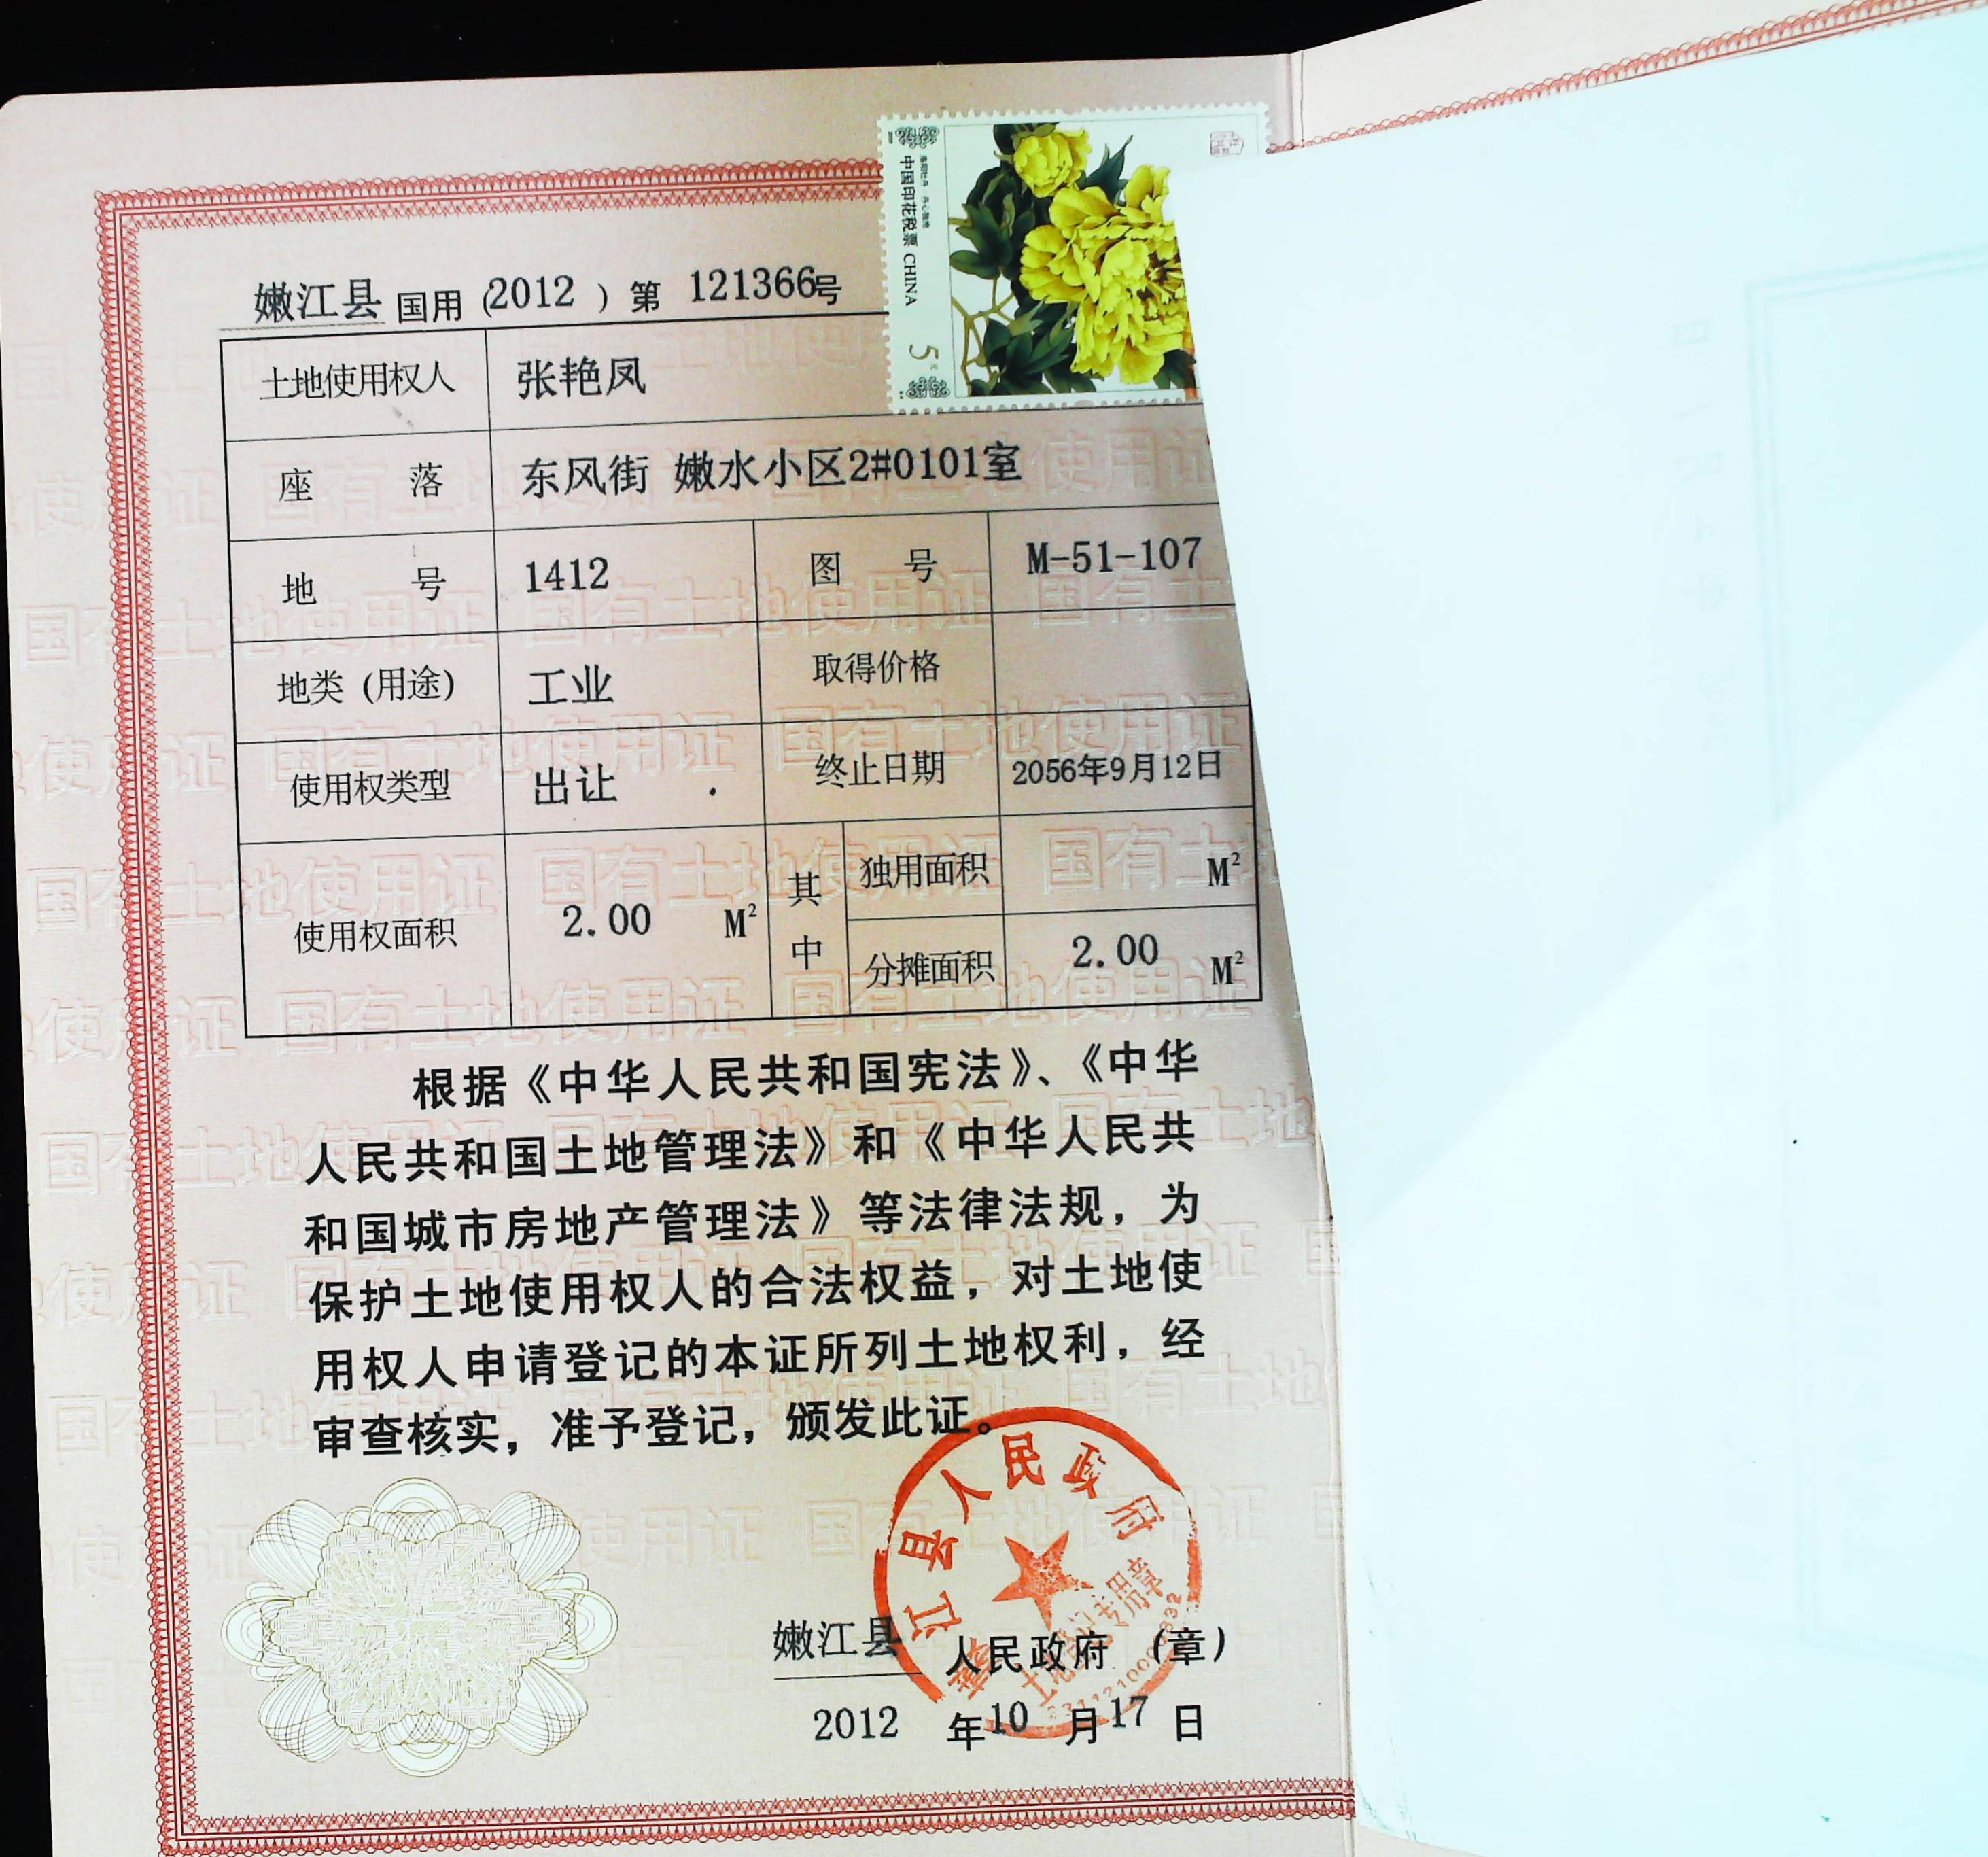 中国印花税票 CHINA
5元
嫩江县 国用（2012）第 121366号
土地使用权人 张艳凤
座 落 东风街 嫩水小区2#0101室
地 号 1412 图 号 M-51-107
地类（用途） 工业 取得价格
使用权类型 出让 终止日期 2056年9月12日
使用权面积 2.00 M² 其中 独用面积 M²
分摊面积 2.00 M²
根据《中华人民共和国宪法》、《中华
人民共和国土地管理法》和《中华人民共
和国城市房地产管理法》等法律法规，为
保护土地使用权人的合法权益，对土地使
用权人申请登记的本证所列土地权利，经
审查核实，准予登记，颁发此证。
江县人民政府
土地登记专用章
嫩江县 人民政府（章）
2012 年 10 月 17 日
国有土地使用证